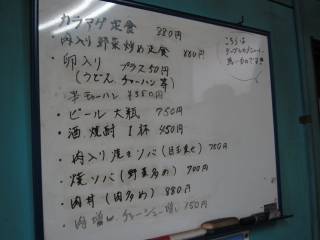 カラアゲ定食 880円
・肉入り野菜炒め定食 880円
・卵入り プラス50円
(うどん、チャーハン等)
半チャーハン ¥350円
・ビール大瓶 750円
・酒 焼酎 1杯 450円
・肉入り焼きソバ(目玉乗せ) 750円
・焼ソバ(野菜多め) 700円
・肉丼(肉多め) 880円
・肉増し、チャーシュー増し 150円
こちらは
テーブルのメニューに